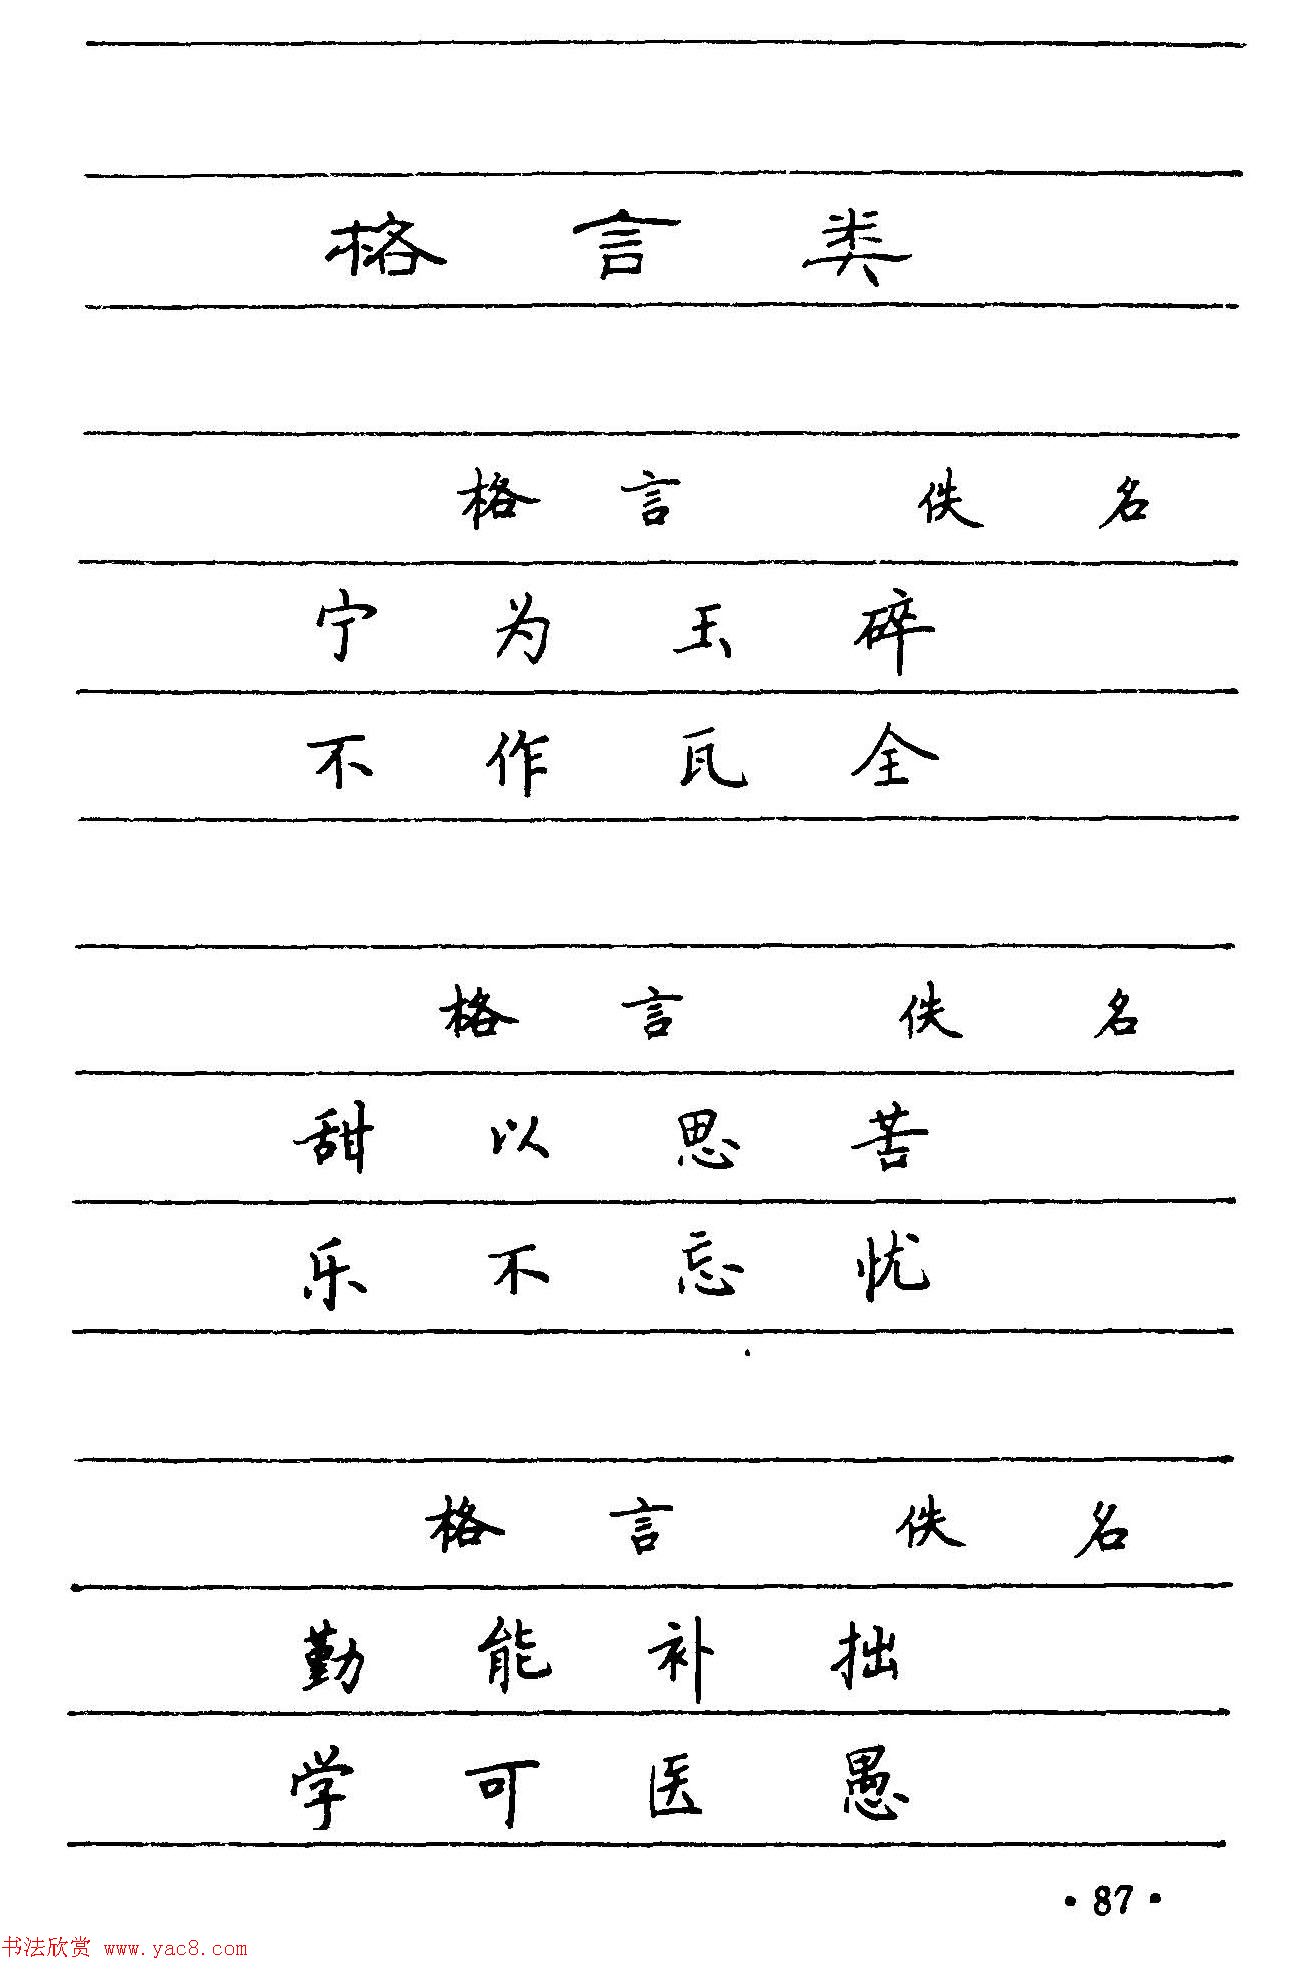 格言类
格言 佚名
宁为玉碎
不作瓦全
格言 佚名
甜以思苦
乐不忘忧
格言 佚名
勤能补拙
学可医愚
·87·
书法欣赏 www.yac8.com